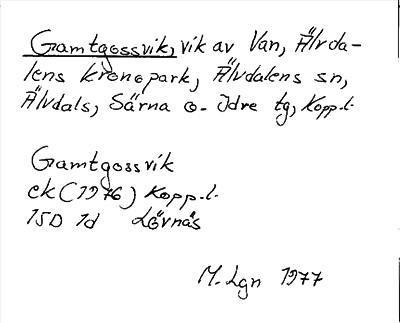 Gamtgossvik, vik av Van, Älvda-
lens kronopark, Älvdalens sn,
Älvdals, Särna o. Idre tg, Kopp.l.
Gamtgossvik
ek (1976) Kopp.l.
15D 1d Lövnäs
M. Lgn 1977